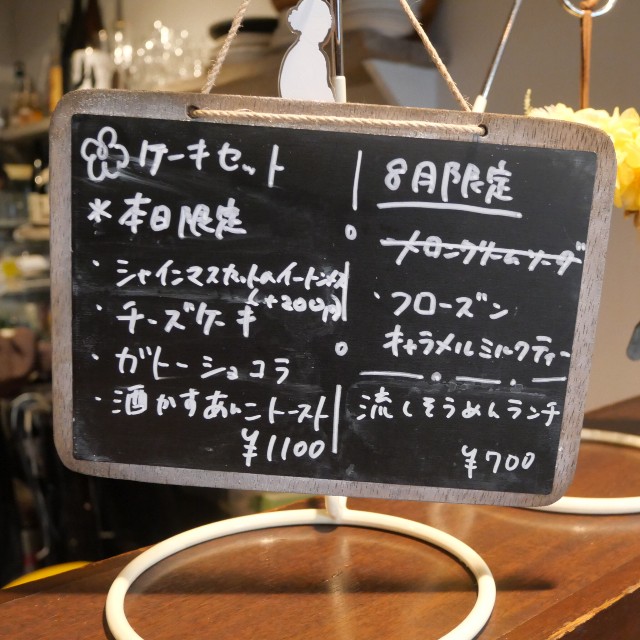 ケーキセット
*本日限定
・シャインマスカットのイートン
(+200円)
・チーズケーキ
・ガトーショコラ
・酒かすあんこトースト
¥1100
8月限定
メロンクリームソーダ
・フローズン
キャラメルミルクティー
流しそうめんランチ
¥700